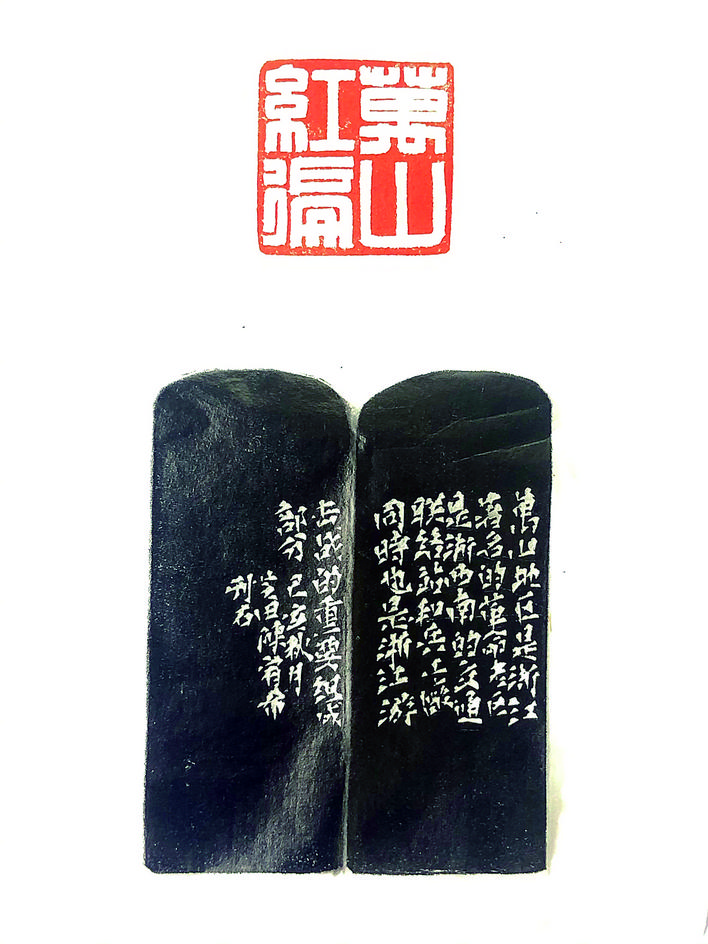 萬山
紅徧
萬山地区是浙江
著名的革命老区
是浙西南的交通
联络站和
同時也是浙江游
击战的重要组成
部分 己亥秋月
旦陳宥希
刊石